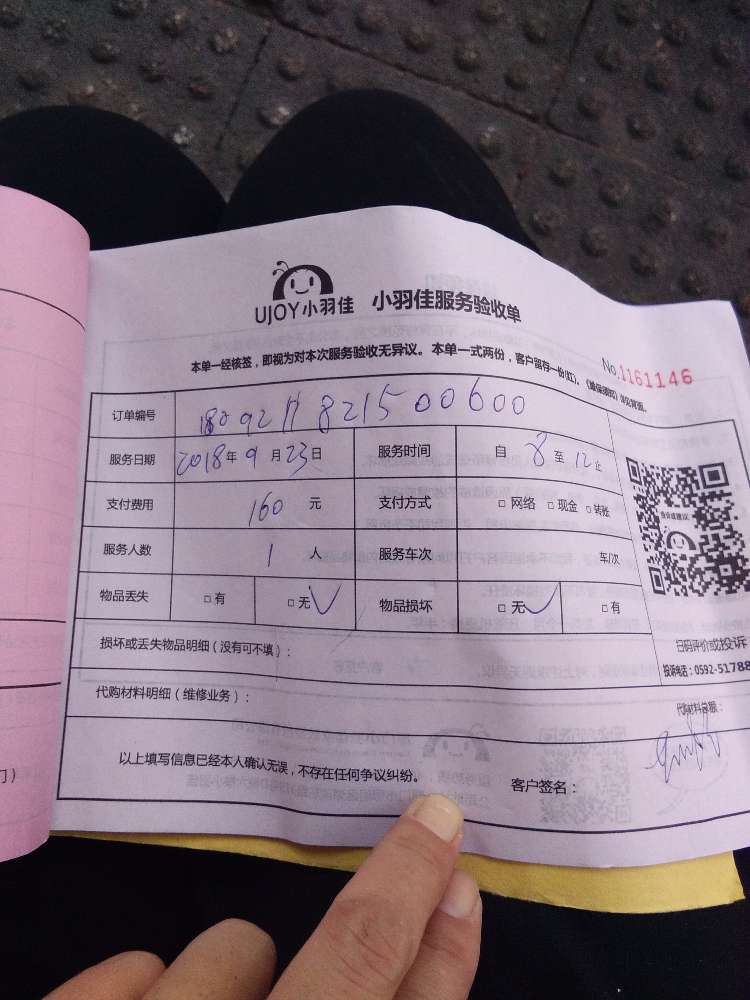 UJOY小羽佳 小羽佳服务验收单
本单一经核签，即视为对本次服务验收无异议。本单一式两份，客户留存一份(红)。
No.1161146
订单编号
服务日期 2018年9月23日 服务时间 自8至12止
支付费用 160元 支付方式 □网络 □现金 □转账
服务人数 1人 服务车次 车/次
物品丢失 □有 □无√ 物品损坏 □无√ □有
扫码评价或投诉
损坏或丢失物品明细（没有可不填）：
投诉电话：0592-51788
代购材料明细（维修业务）：
代购材料总额：
以上填写信息已经本人确认无误，不存在任何争议纠纷。 客户签名：